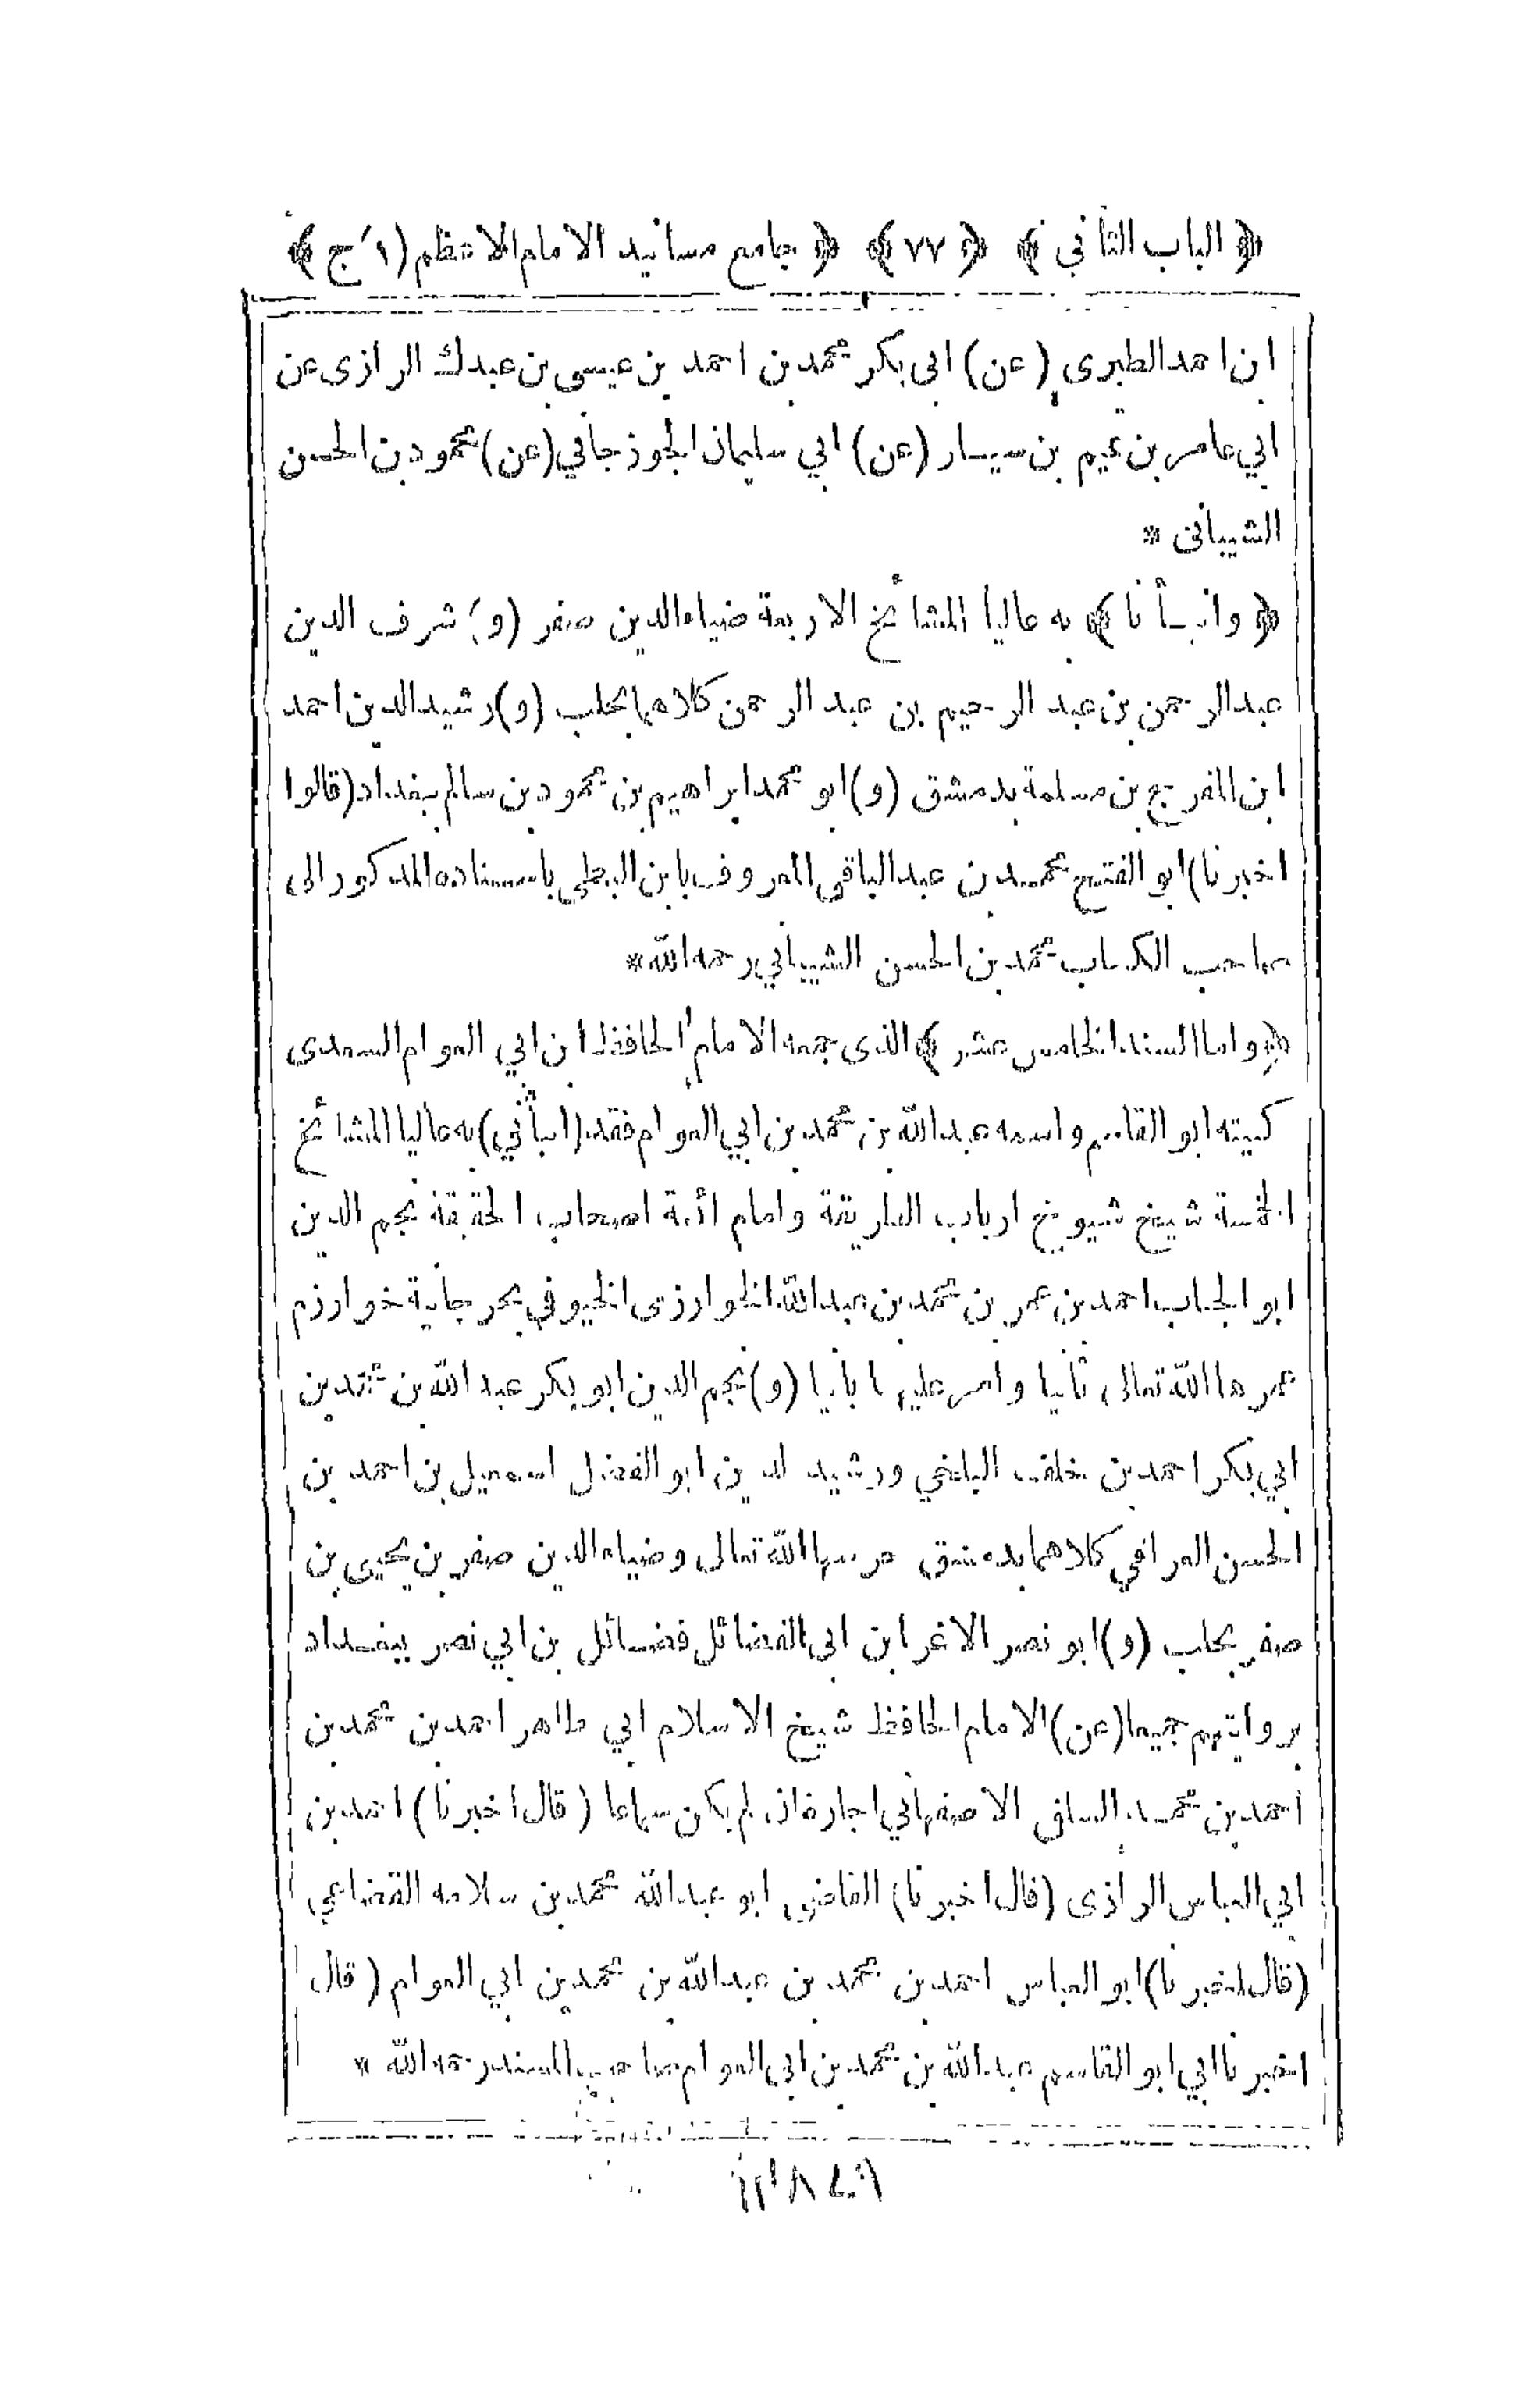 ﴿ الباب الثاني ﴾ ﴿ ٧٧ ﴾ ﴿ جامع مسانيد الامام الاعظم (١ ج ﴾
ابن احمد الطبرى (عن) ابى بكر محمد بن احمد بن عيسى بن عبدك الرازى عن
ابي عامر بن تميم بن سيار (عن) ابي سليمان الجوزجاني (عن) محمود بن الحسن
الشيبانى *
﴿ وانبأنا ﴾ به عاليا المشائخ الاربعة ضياء الدين صقر (و) شرف الدين
عبد الرحمن بن عبد الرحيم بن عبد الرحمن كلاهما بحلب (و) رشيد الدين احمد
ابن المفرج بن مسلمة بدمشق (و) ابو محمد ابراهيم بن محمود بن سالم ببغداد (قالوا
اخبرنا) ابو الفتح محمد بن عبد الباقي المعروف بابن البطي باسناده المذكور الى
صاحب الكتاب محمد بن الحسن الشيباني رحمه الله *
﴿ واما المسند الخامس عشر ﴾ الذى جمعه الامام الحافظ ابن ابي العوام السعدى
كنيته ابو القاسم واسمه عبد الله بن محمد بن ابي العوام فقد (انبأني) به عاليا المشائخ
الخمسة شيخ شيوخ ارباب الطريقة وامام ائمة اصحاب الحقيقة نجم الدين
ابو الجناب احمد بن عمر بن محمد بن عبد الله الخوارزمى الخيوقي بجرجانية خوارزم
عمرها الله تعالى ثانيا وامر عليها بانيا (و) نجم الدين ابو بكر عبد الله بن محمد بن
ابي بكر احمد بن خلف البلخي ورشيد لدين ابو الفضل اسمعيل بن احمد بن
الحسن العراقي كلاهما بدمشق حرسها الله تعالى وضياء الدين صقر بن يحيى بن
صقر بحلب (و) ابو نصر الاغر ابن ابى الفضائل فضائل بن ابي نصر ببغداد
بروايتهم جميعا (عن) الامام الحافظ شيخ الاسلام ابي طاهر احمد بن محمد بن
احمد بن محمد السلفى الاصفهاني اجازة ان لم يكن سماعا (قال اخبرنا) احمد بن
ابي العباس الرازى (قال اخبرنا) القاضي ابو عبد الله محمد بن سلامه القضاعي
(قال اخبرنا) ابو العباس احمد بن محمد بن عبد الله بن محمد بن ابي العوام (قال
اخبرنا ابي ابو القاسم عبد الله بن محمد بن ابي العوام صاحب المسند رحمه الله *